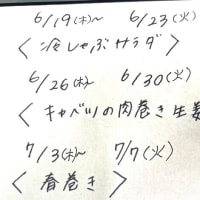 6/19(木)〜 6/23(火)
< 冷しゃぶサラダ >
6/26(木)〜 6/30(火)
< キャベツの肉巻き生姜
7/3(木)〜 7/7(火)
< 春巻き >